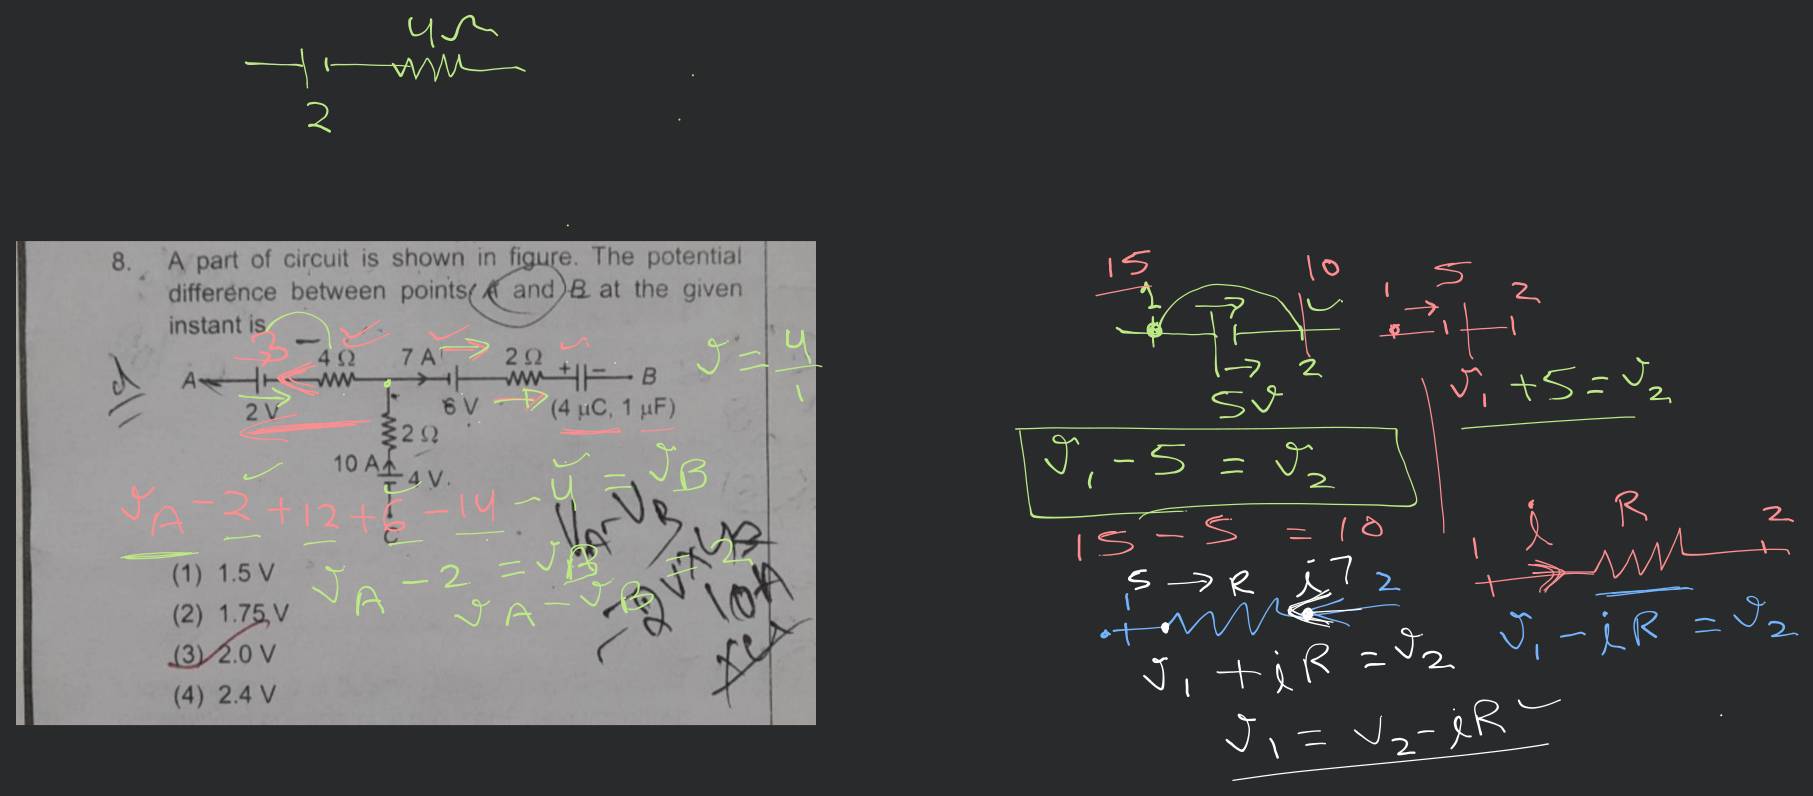 4Ω
2
8. A part of circuit is shown in figure. The potential
difference between points A and B at the given
instant is
3
4 Ω 7 A 2 Ω + -
A B
2 V 6 V (4 μC, 1 μF)
2 Ω
10 A 4 V.
C
V = 4/1
VA - 2 + 12 + 6 - 14 - 4 = VB
VA - 2 = VB
VA - VB = 2
VA - VB
(1) 1.5 V
(2) 1.75 V
(3) 2.0 V
(4) 2.4 V
15 10
1 2
5V
V1 - 5 = V2
15 - 5 = 10
1 5 2
V1 + 5 = V2
1 i R 2
V1 - iR = V2
5 → R i 2
1
V1 + iR = V2
V1 = V2 - iR